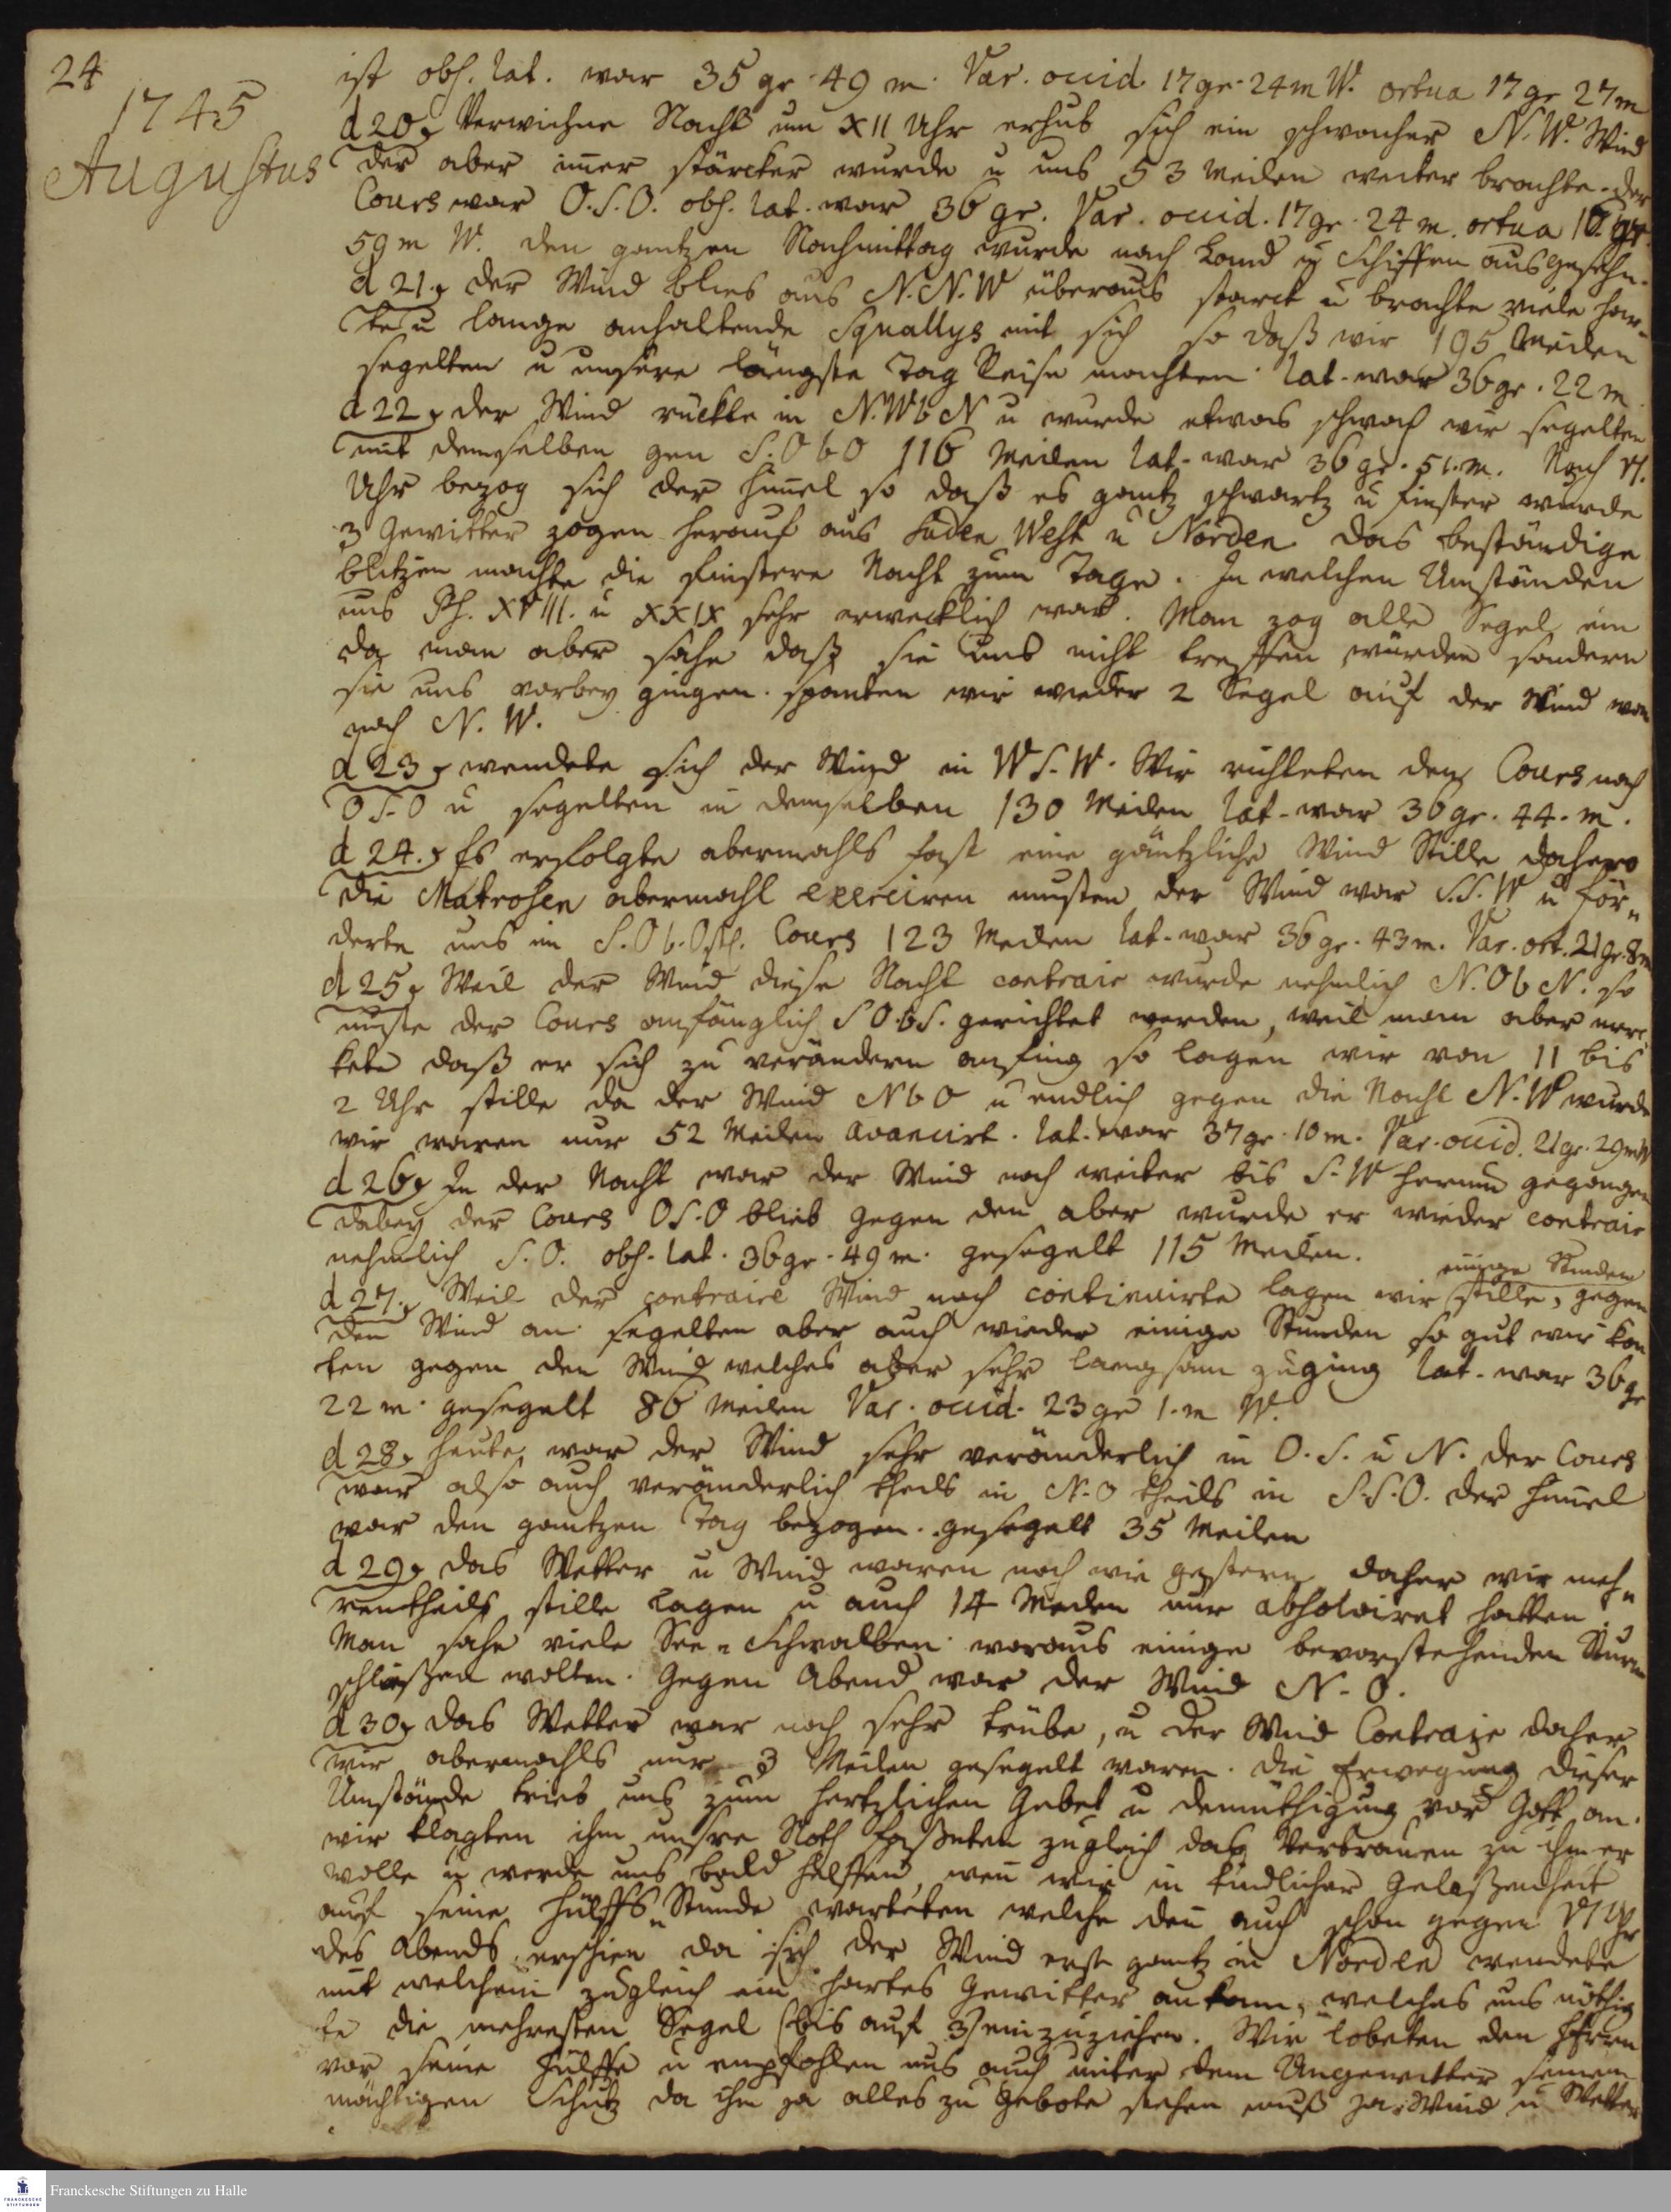 24
1745
Augustus
ist obs. lat. war 35 gr. 49 m. Var. occid. 17 gr. 24 m W. ortua 17 gr 27 m
d 20. Verwichne Nacht um XII Uhr erhub sich ein schwacher N. W. Wind
der aber im̄er stärcker wurde u uns 53 Meilen weiter brachte. der
Cours war O. S. O. obs. lat. war 36 gr. Var. occid. 17 gr. 24 m. ortua 16 gr
59 m W. den gantzen Nachmittag wurde nach Land u Schiffen ausgesehn.
d 21. der Wind blies aus N. N. W überaus starck u brachte viele har-
te u lange anhaltende Squallys mit sich so daß wir 195 Meilen
segelten u unsere längste Tag Reise machten. lat. war 36 gr. 22 m
d 22. der Wind ruckte in N. W b N u wurde etwas schwach wir segelten
mit demselben gen S. O b O 116 Meilen lat. war 36 gr. 51. m. Nach VI.
Uhr bezog sich der Him̄el so daß es gantz schwartz u finster wurde
3 Gewitter zogen herauf aus Süden West u Norden das beständige
blitzen machte die finstere Nacht zum Tage. In welchen Umständen
uns Ps. XVIII. u XXIX sehr erwecklich war. Man zog alle Segel ein
da man aber sahe daß sie uns nicht treffen würden sondern
sie uns vorbey gingen. spanten wir wieder 2 Segel auf der Wind war
noch N. W.
d 23. wendete sich der Wind in W S. W. Wir richteten den Cours nach
O S. O u segelten in demselben 130 Meilen lat. war 36 gr. 44. m.
d 24. Es erfolgte abermahls fast eine gäntzliche Wind Stille dahero
die Matrosen abermahl exerciren musten der Wind war S. S. W u för-
derte uns im S. O b. Ostl. Cours 123 Meilen lat. war 36 gr. 43 m. Var. ort. 21 gr. 8 m
d 25. Weil der Wind diese Nacht contrair wurde nehmlich N. O b N. so
muste der Cours anfänglich S O b S. gerichtet werden, weil man aber merc
kete daß er sich zu verändern anfing so lagen wir von 11 bis
2 Uhr stille da der Wind N b O u endlich gegen die Nacht N. W wurde
wir waren nur 52 Meilen avancirt. lat. war 37 gr. 10 m. Var. occid. 21 gr. 29 m W
d 26. In der Nacht war der Wind noch weiter bis S. W herum gegangen
dabey der Cours O S. O blieb gegen den aber wurde er wieder contrair
nehmlich S. O. obs. lat. 36 gr. 49 m. gesegelt 115 Meilen.
einige Stunden
d 27. Weil der contraire Wind noch continuirte lagen wir stille, gegen
den Wind an. segelten aber auch wieder einige Stunden so gut wir kon
ten gegen den Wind welches aber sehr langsam zuging lat. war 36 gr
22 m. gesegelt 86 Meilen Var. occid. 23 gr 1. m W.
d 28. heute war der Wind sehr veränderlich in O. S. u N. der Cours
war also auch veränderlich theils in N. O theils in S. S. O. der Him̄el
war den gantzen Tag bezogen. gesegelt 35 Meilen
d 29. das Wetter u Wind waren noch wie gestern daher wir meh-
rentheils stille lagen u auch 14 Meilen nur absolviret hatten.
Man sahe viele See-Schwalben. woraus einige bevorstehenden Sturm
schließen wolten. Gegen Abend war der Wind N. O.
d 30. das Wetter war noch sehr trübe, u der Wind Contrair daher
wir abermahls nur 3 Meilen gesegelt waren. die Erwegung dieser
Umstände trieb uns zum hertzlichen Gebet u demüthigung vor Gott an.
wir klagten ihm unsre Noth faßeten zugleich das Vertrauen zu ihm er
wolle u werde uns bald helffen, wen̄ wir in kindlicher Gelaßenheit
auf seine Hülffs-Stunde warteten welche den̄ auch schon gegen VI Uhr
des Abends erschien da sich der Wind erst gantz in Norden wendete
mit welchem zugleich ein hartes Gewitter ankam, welches uns nöthig
te die mehresten Segel (bis auf 3) einzuziehen. Wir lobeten den Herrn
vor seine Hülffe u empfohlen uns auch unter dem Ungewitter seinem
mächtigen Schutz da ihm ja alles zu Gebote stehen muß ja Wind u Wetter
Franckesche Stiftungen zu Halle
FRANCKESCHE STIFTUNGEN